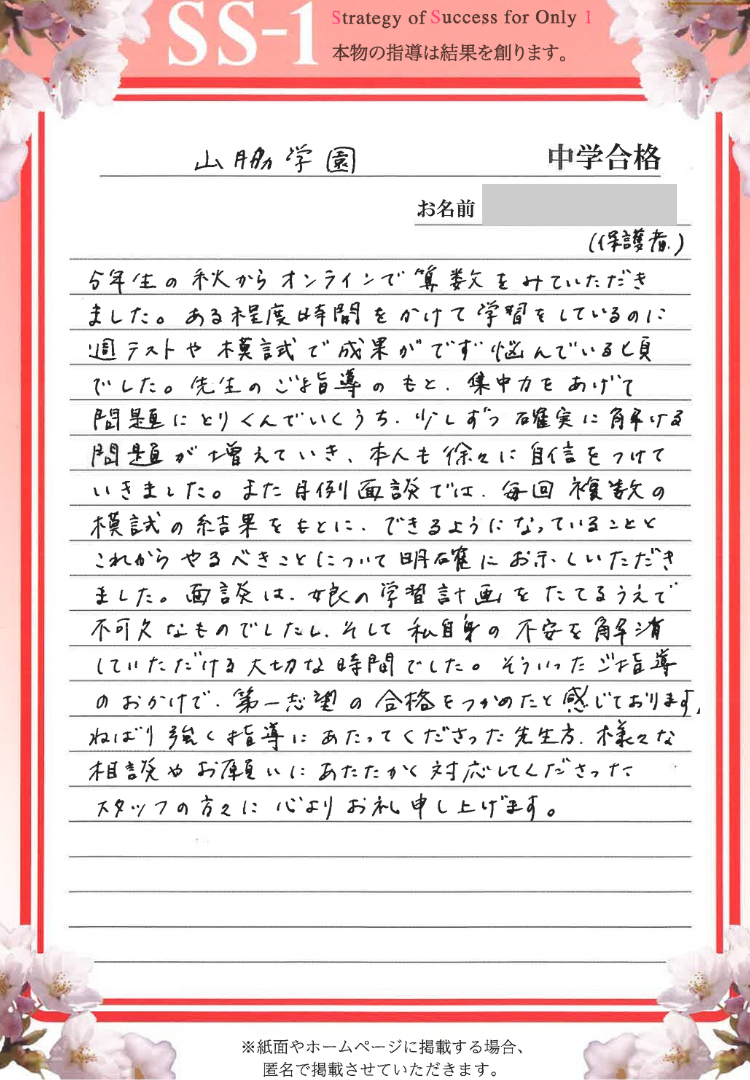 SS-1
Strategy of Success for Only 1
本物の指導は結果を創ります。
山脇学園 中学合格
お名前
(保護者)
5年生の秋からオンラインで算数をみていただき
ました。ある程度時間をかけて学習をしているのに
週テストや模試で成果がでず悩んでいる頃
でした。先生のご指導のもと、集中力をあげて
問題にとりくんでいくうち、少しずつ確実に解ける
問題が増えていき、本人も徐々に自信をつけて
いきました。また月例面談では、毎回複数の
模試の結果をもとに、できるようになっていることと
これからやるべきことについて明確にお示しいただき
ました。面談は、娘の学習計画をたてるうえで
不可欠なものでしたし、そして私自身の不安を解消
していただける大切な時間でした。そういったご指導
のおかげで、第一志望の合格をつかめたと感じております。
ねばり強く指導にあたってくださった先生方、様々な
相談やお願いにあたたかく対応してくださった
スタッフの方々に心よりお礼申し上げます。
※紙面やホームページに掲載する場合、
匿名で掲載させていただきます。